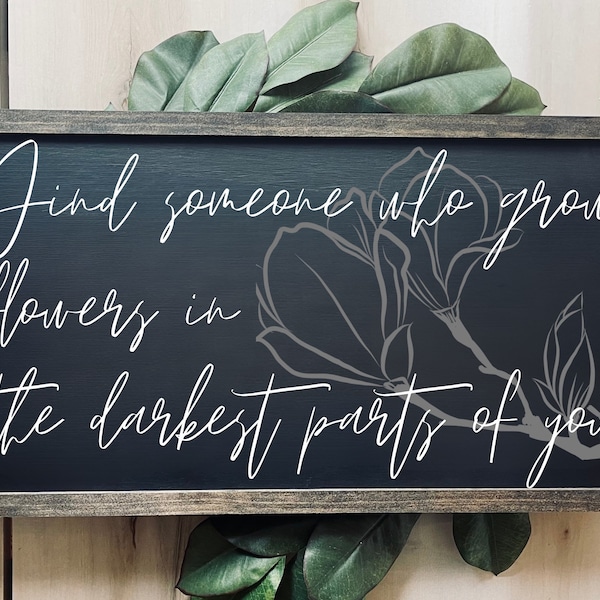 Find someone who grow
flowers in
the darkest parts of you